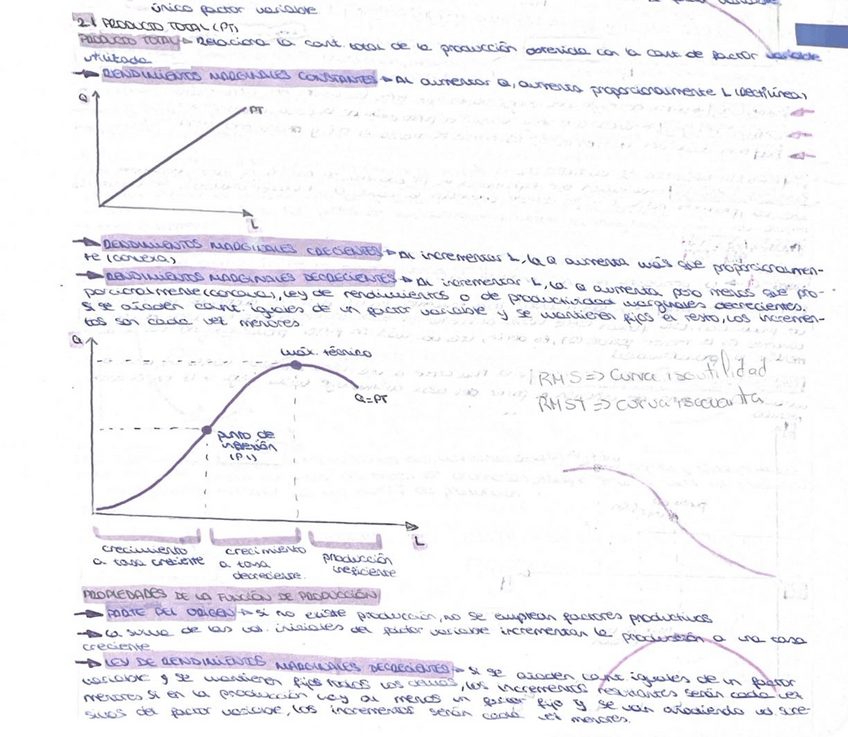 único factor variable
2.1 PRODUCTO TOTAL (PT)
PRODUCTO TOTAL → Relaciona la cant. total de la producción obtenida con la cant. de factor variable
utilizada
→ RENDIMIENTOS MARGINALES CONSTANTES → Al aumentar Q, aumenta proporcionalmente L (rectilínea)
Q
PT
L
→ RENDIMIENTOS MARGINALES CRECIENTES → Al incrementar L, la Q aumenta más que proporcionalmen-
te (convexa)
→ RENDIMIENTOS MARGINALES DECRECIENTES → Al incrementar L, la Q aumenta, pero menos que pro-
porcionalmente (concava), ley de rendimientos o de productividad marginales decrecientes.
Si se añaden cant. iguales de un factor variable y se mantienen fijos el resto, los incremen-
tos son cada vez menores
Q
máx. técnico
Q=PT
RMS => curva isoutilidad
RMST => curva isocuanta
punto de
inflexión
(P.I)
L
crecimiento
a tasa creciente
crecimiento
a tasa
decreciente
producción
ineficiente
PROPIEDADES DE LA FUNCIÓN DE PRODUCCIÓN
→ PARTE DEL ORIGEN → si no existe producción, no se emplean factores productivos
→ La suma de las iniciales del factor variable incrementan la producción a una tasa
creciente
→ LEY DE RENDIMIENTOS MARGINALES DECRECIENTES → Si se añaden cant. iguales de un factor
variable y se mantienen fijos todos los los incrementos resultantes serán cada vez
menores si en la producción hay al menos un factor fijo y se van añadiendo suce-
sivos del factor variable, los incrementos serán cada vez menores.